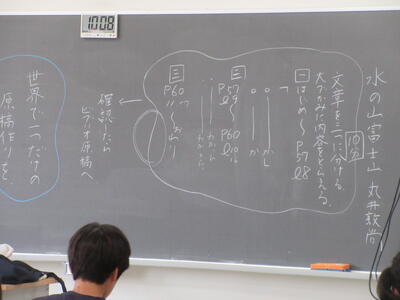 水の山富士山 丸井敦尚
10分
文章を三つに分ける。
大まかに内容をとらえる。
一 はじめ〜P57 l8
二 P57 l9〜P60 l10
三 P60 l11〜おわり
確認したら
ビデオ原稿へ
世界で一つだけの
原稿作りを
10:08